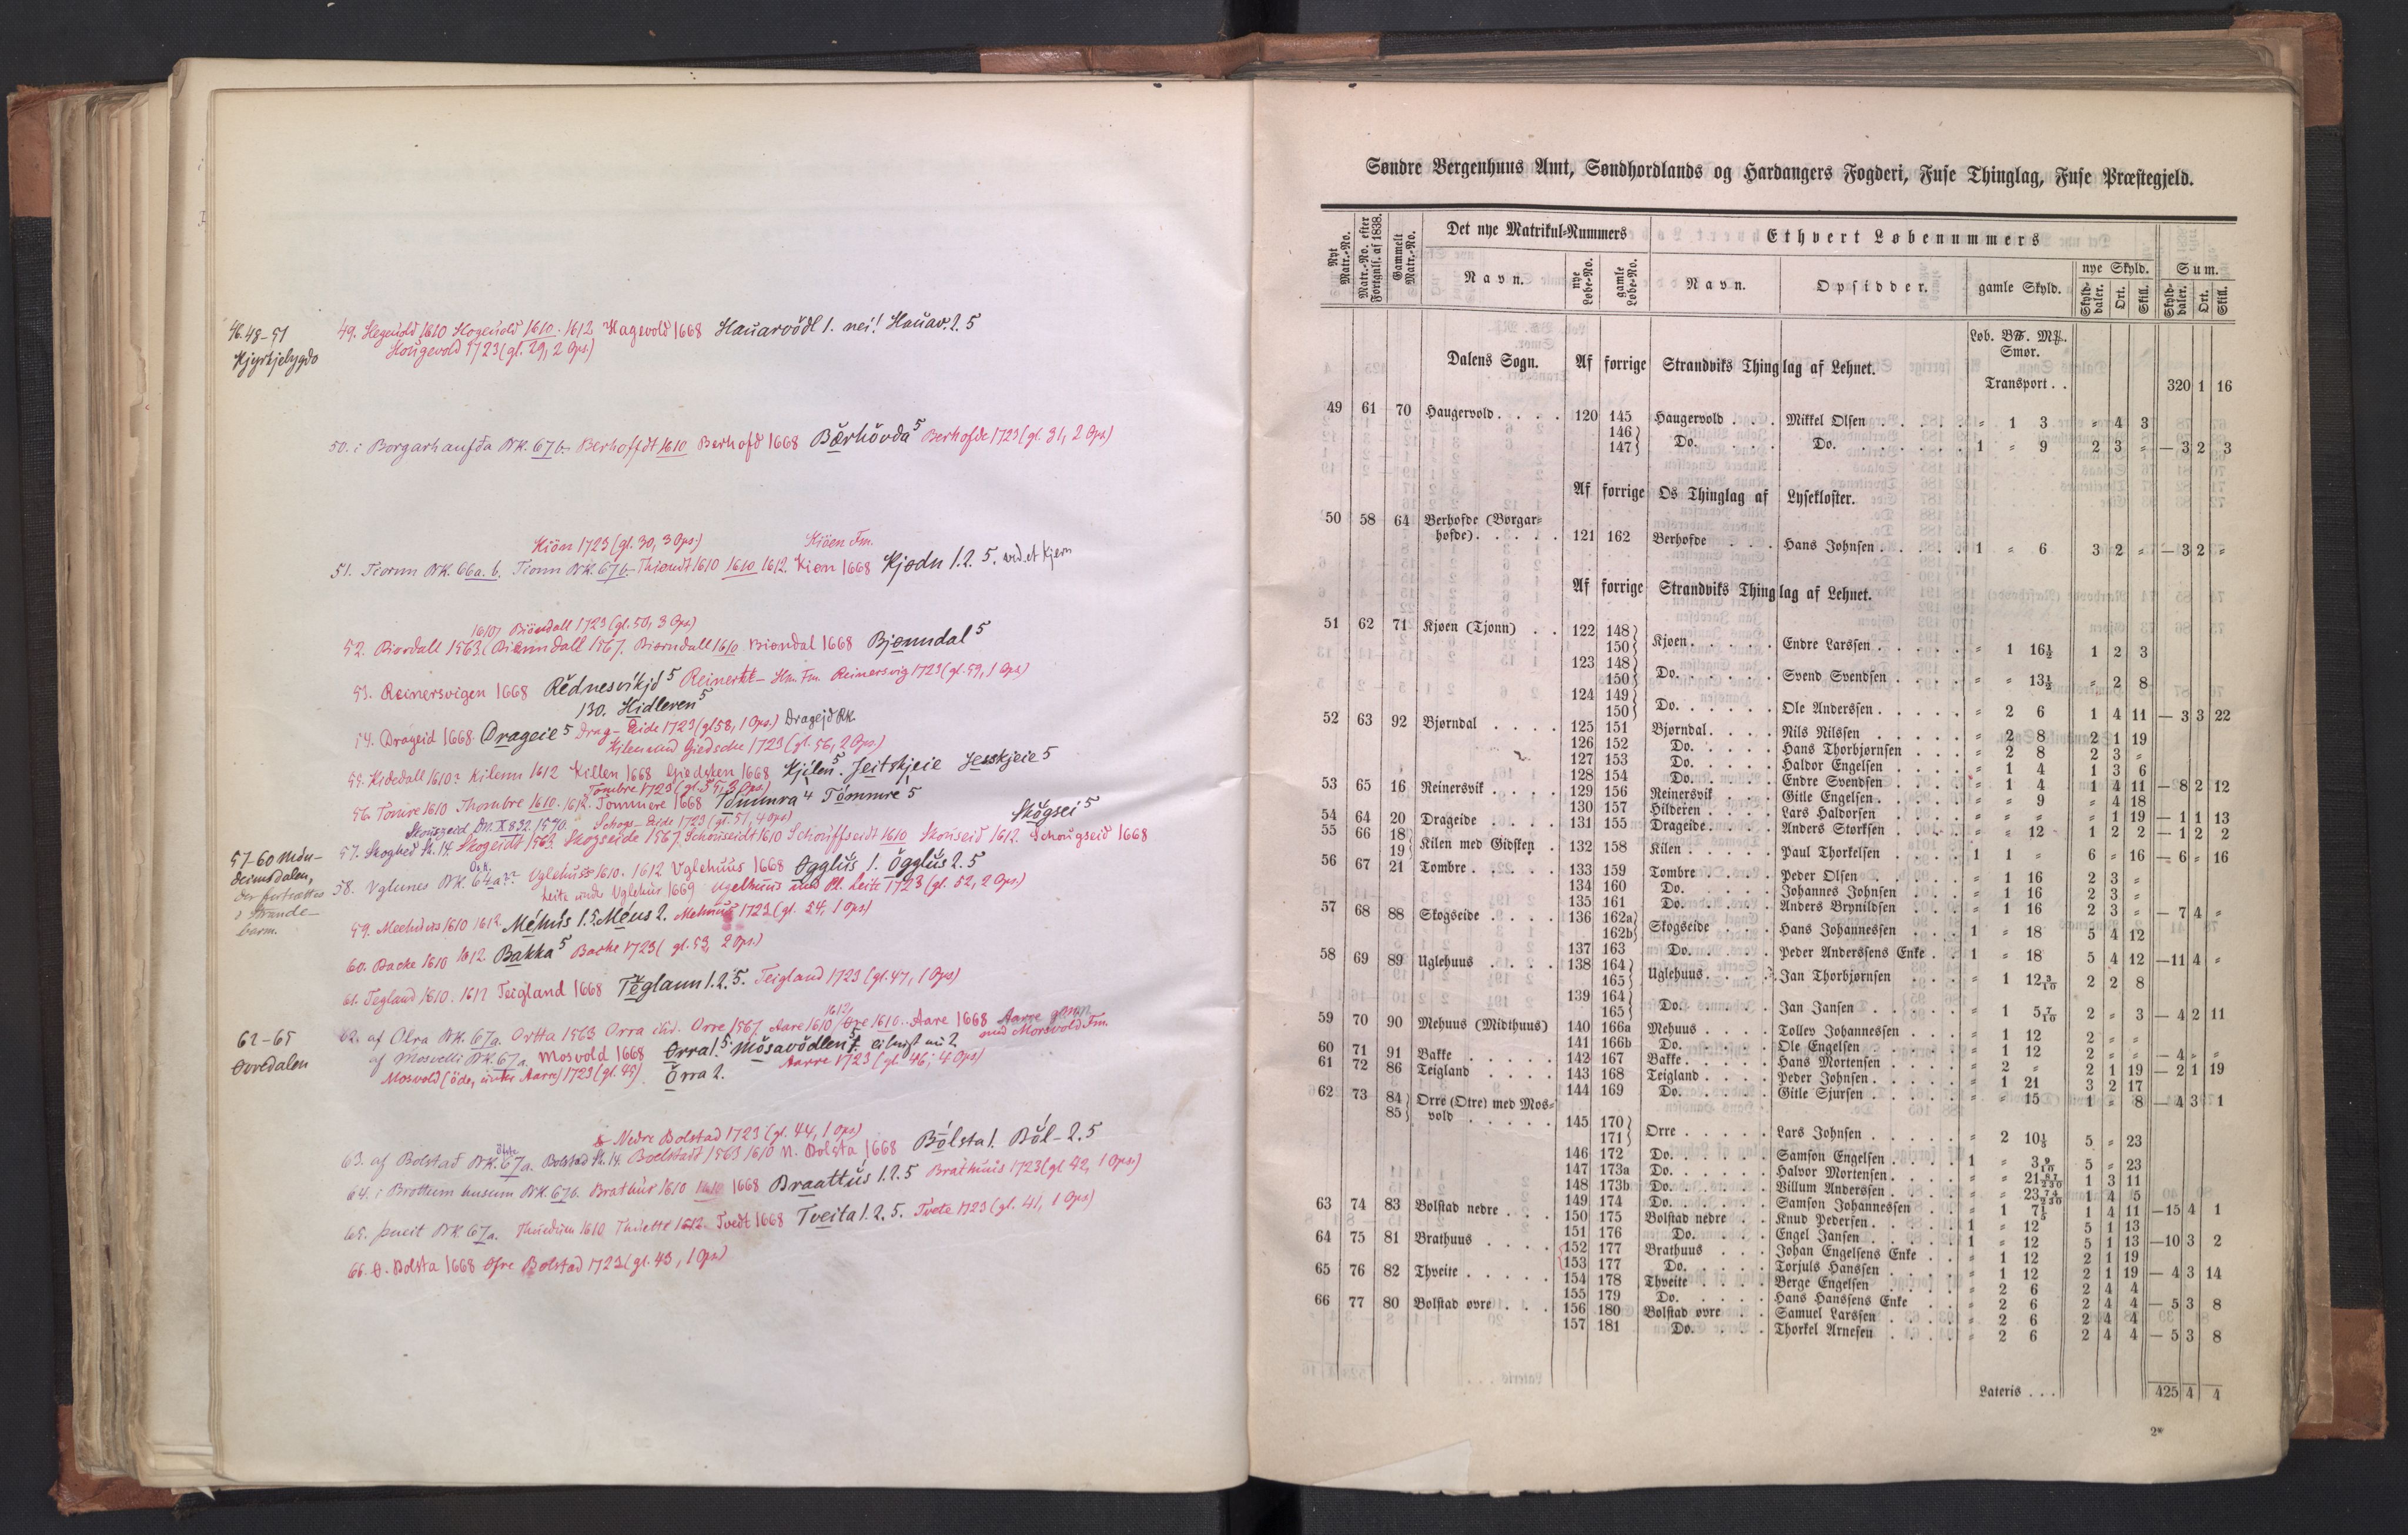 46. 48–51
Kyrkjebygdo
49. Hegeuold 1610 Hogeuold 1610. 1612 Hagevold 1668 Hauarvödl 1. nei! Hauav. 2. 5
Hougevold 1723 (gl. 29, 2 Ops.)
50. i Borgarhaufda BK. 67b. Berhoffdt 1610 Berhofd 1668 Bærhövda 5 Berhofde 1723 (gl. 31, 2 Ops.)
Kiön 1723 (gl. 30, 3 Ops.) Kiöen Fm.
51. Tiornn BK. 66a. b. Tionn BK. 67b. Thiondt 1610 1610 1612. Kiøn 1668 Kjødn 1. 2. 5. ved et Kjern
1610 Biöndall 1723 (gl. 50, 3 Ops.)
52. Biordall 1563. Biörndall 1567. Biørndall 1610 Biøndal 1668 Bjønndal 5
53. Reinersvigen 1668 Rednesvikjo 5 Reinertt– Hm. Fm. Reinersvig 1723 (gl. 59, 1 Ops.)
130. Hidleren 5
54. Drageid 1668. Drageie 5 Drag–Eide 1723 (gl. 58, 1 Ops.) Drageid RK.
Kilen med Giedsche 1723 (gl. 56, 2 Ops.)
55. Kidedall 1610? Kilenn 1612 Killen 1668 Giedsken 1668 Kjilen 5. Jeitskjeie Jesskjeie 5
Tombre 1723 (gl. 55, 3 Ops.)
56. Tomre 1610 Thombre 1610. 1612. Tommere 1668 Tömmra 4 Tömmre 5
Skougzeid DN. X 832. 1570. Schogs–Eide 1723 (gl. 51, 4 Ops.) Skögsei 5
57–60 Mön–
dermsdalen,
der fortsættes
i Strande–
barm.
57. Skoghed St. 14. Skogeidt 1563. Skogseide 1567. Schouseidt 1610 Schouffseidt 1610 Skouseid 1612. Schougseid 1668
58. Vglunes BK. 64a?? Uglehuss 1610. 1612 Vglehuus 1668 Ogglus 1. Ögglus 2. 5
Leite under Uglehus 1669 Ugelhuus med Pl. Leite 1723 (gl. 52, 2 Ops.)
59. Meehuus 1610 1612. Méhus 1. 5. Méus 2. Mehuus 1723 (gl. 54, 1 Ops)
60. Backe 1610 1612. Bakka 5 Backe 1723 (gl. 53, 2 Ops.)
61. Tegland 1610. 1612 Teigland 1668 Teglann 1. 2. 5. Teigland 1723 (gl. 47, 1 Ops)
62–65
Övredalen
62. af Olra BK. 67a. Ortta 1563 Orra ibid. Orre 1567 Aare 1610 Ore 1610. Aare 1668 Aarre med Morsvold Fm.
af Mosvelli BK. 67a. Mosvold 1668 Orra 1. 5. Mösavödlen 5. eiligst nu 2.
Mosvold (öde, under Aarre) 1723 (gl. 45) Örra 2. Aarre 1723 (gl. 46, 4 Ops)
Nedre Bolstad 1723 (gl. 44, 1 Ops)
63. af Bolstad BK. 67a. Bolstad St. 14. Boelstadt 1563 1610 N. Bolsta 1668 Bólsta 1. Ból– 2. 5
64. i Brottum husum BK. 67b. Brathus 1610 1610 1668 Braattus 1. 2. 5 Brathuus 1723 (gl. 42, 1 Ops)
65. þueit BK. 67a. Thuedten 1610 Thuette 1612. Tvedt 1668 Tveita 1. 2. 5. Tvete 1723 (gl. 41, 1 Ops)
66. Ø. Bolsta 1668 Øfre Bolstad 1723 (gl. 43, 1 Ops)
Søndre Bergenhuus Amt, Søndhordlands og Hardangers Fogderi, Fuse Thinglag, Fuse Præstegjeld.
Nyt Matr.-No. Matr.-No. efter Fortgnls. af 1838. Gammelt Matr.-No. Det nye Matrikul-Nummers Ethvert Løbenummers
Navn. nye Løbe-No. gamle Løbe-No. Navn. Opsidder. gamle Skyld. nye Skyld. Sum.
Skylddaler. Ort. Skill. Skylddaler. Ort. Skill.
Løb. B℔. M℔.
Smør.
Dalens Sogn. Af forrige Strandviks Thinglag af Lehnet.
Transport . . 320 1 16
49 61 70 Haugervold . . . . 120 145 Haugervold . . . Mikkel Olsen . . . . . " 1 3 " 4 3
146 } 147 } Do. . . . . Do. . . . . . . 1 " 9 2 3 " — 3 2 3
Af forrige Os Thinglag af Lysekloster.
50 58 64 Berhofde (Borgar=
hofde) . . . . . 121 162 Berhofde . . . . Hans Johnsen . . . . . 1 " 6 3 2 " — 3 2 "
Af forrige Strandviks Thinglag af Lehnet.
51 62 71 Kjøen (Tjønn) . . 122 148 } 150 } Kjøen . . . . . Endre Larssen . . . . . " 1 16½ 1 2 3
123 148 } 150 } Do. . . . . . Svend Svendsen . . . . " " 13½ " 2 8
124 149 } 150 } Do. . . . . . Ole Anderssen . . . . . " 2 6 1 4 11 — 3 3 22
52 63 92 Bjørndal . . . . 125 151 Bjørndal . . . . Nils Nilssen . . . . . " 2 8 2 1 19
126 152 Do. . . . . Hans Thorbjørnsen . . . " 2 8 2 3 "
127 153 Do. . . . . Haldor Engelsen . . . . " 1 4 1 3 6
128 154 Do. . . . . Endre Svendsen . . . . " 1 4 1 4 11 — 8 2 12
53 65 16 Reinersvik . . . . 129 156 Reinersvik . . . Gitle Engelsen . . . . . " " 9 " 4 18
130 157 Hilderen . . . . Lars Haldorsen . . . . " " " " 1 19 — 1 1 13
54 64 20 Drageide . . . . 131 155 Drageide . . . . Anders Storksen . . . . " " 12 1 2 2 — 1 2 2
55 66 18 } 19 } Kilen med Gidsken . 132 158 Kilen . . . . . Paul Thorkelsen . . . . 1 1 " 6 " 16 — 6 " 16
56 67 21 Tombre . . . . . 133 159 Tombre . . . . Peder Olsen . . . . . " 1 16 2 3 "
134 160 Do. . . . . Johannes Johnsen . . . " 1 16 2 3 "
135 161 Do. . . . . Anders Brynildsen . . . " 1 16 2 3 " — 7 4 "
57 68 88 Skogseide . . . . 136 162a } 162b } Skogseide . . . Hans Johannessen . . . 1 " 18 5 4 12
137 163 Do. . . . . Peder Anderssens Enke . . 1 " 18 5 4 12 — 11 4 "
58 69 89 Uglehuus . . . . 138 164 } 165 } Uglehuus . . . . Jan Thorbjørnsen . . . " 1 12 3/10 2 2 8
139 164 } 165 } Do. . . . . Jan Jansen . . . . . " 1 5 7/10 2 " 3 — 4 2 11
59 70 90 Mehuus (Midthuus) 140 166a Mehuus . . . . Tollev Johannessen . . . " 1 12 2 " "
141 166b Do. . . . . Ole Engelsen . . . . . " 1 12 2 " " — 4 " "
60 71 91 Bakke . . . . . 142 167 Bakke . . . . . Hans Mortensen . . . . " 2 " 2 1 19 — 2 1 19
61 72 86 Teigland . . . . 143 168 Teigland . . . . Peder Johnsen . . . . . " 1 21 3 2 17
144 169 Do. . . . . Gitle Sjursen . . . . . " " 15 1 " 8 — 4 3 1
62 73 84 } 85 } Orre (Otre) med Mos=
vold . . . . . 145 170 } 171 } Orre . . . . . Lars Johnsen . . . . . " 2 10⅕ 5 " 23
146 172 Do. . . . . Samson Engelsen . . . . 1 " 3 9/10 5 " 23
147 173a Do. . . . . Halvor Mortensen . . . . " " 21 87/230 1 3 11
148 173b Do. . . . . Villum Anderssen . . . . " " 23 74/230 1 4 5
149 174 Do. . . . . Samson Johannessen . . " 1 7⅕ 1 4 11 — 15 4 1
63 74 83 Bolstad nedre . . . 150 175 Bolstad nedre . . Knud Pedersen . . . . . 1 " 12 5 1 13
151 176 Do. . . . . Engel Jansen . . . . . 1 " 12 5 1 13 — 10 3 2
64 75 81 Brathuus . . . . 152 177 Brathuus . . . Johan Engelsens Enke . . " 1 12 2 1 19
153 177 Do. . . . . Torjuls Hanssen . . . . " 1 12 2 1 19 — 4 3 14
65 76 82 Thveite . . . . . 154 178 Thveite . . . . Berge Engelsen . . . . " 2 6 2 4 4
155 179 Do. . . . . Hans Hanssens Enke . . " 2 6 2 4 4 — 5 3 8
66 77 80 Bolstad øvre . . . 156 180 Bolstad øvre . . Samuel Larssen . . . . " 2 6 2 4 4
157 181 Do. . . . . Thorkel Arnesen . . . . " 2 6 2 4 4 — 5 3 8
Lateris . . . 425 4 4
2*